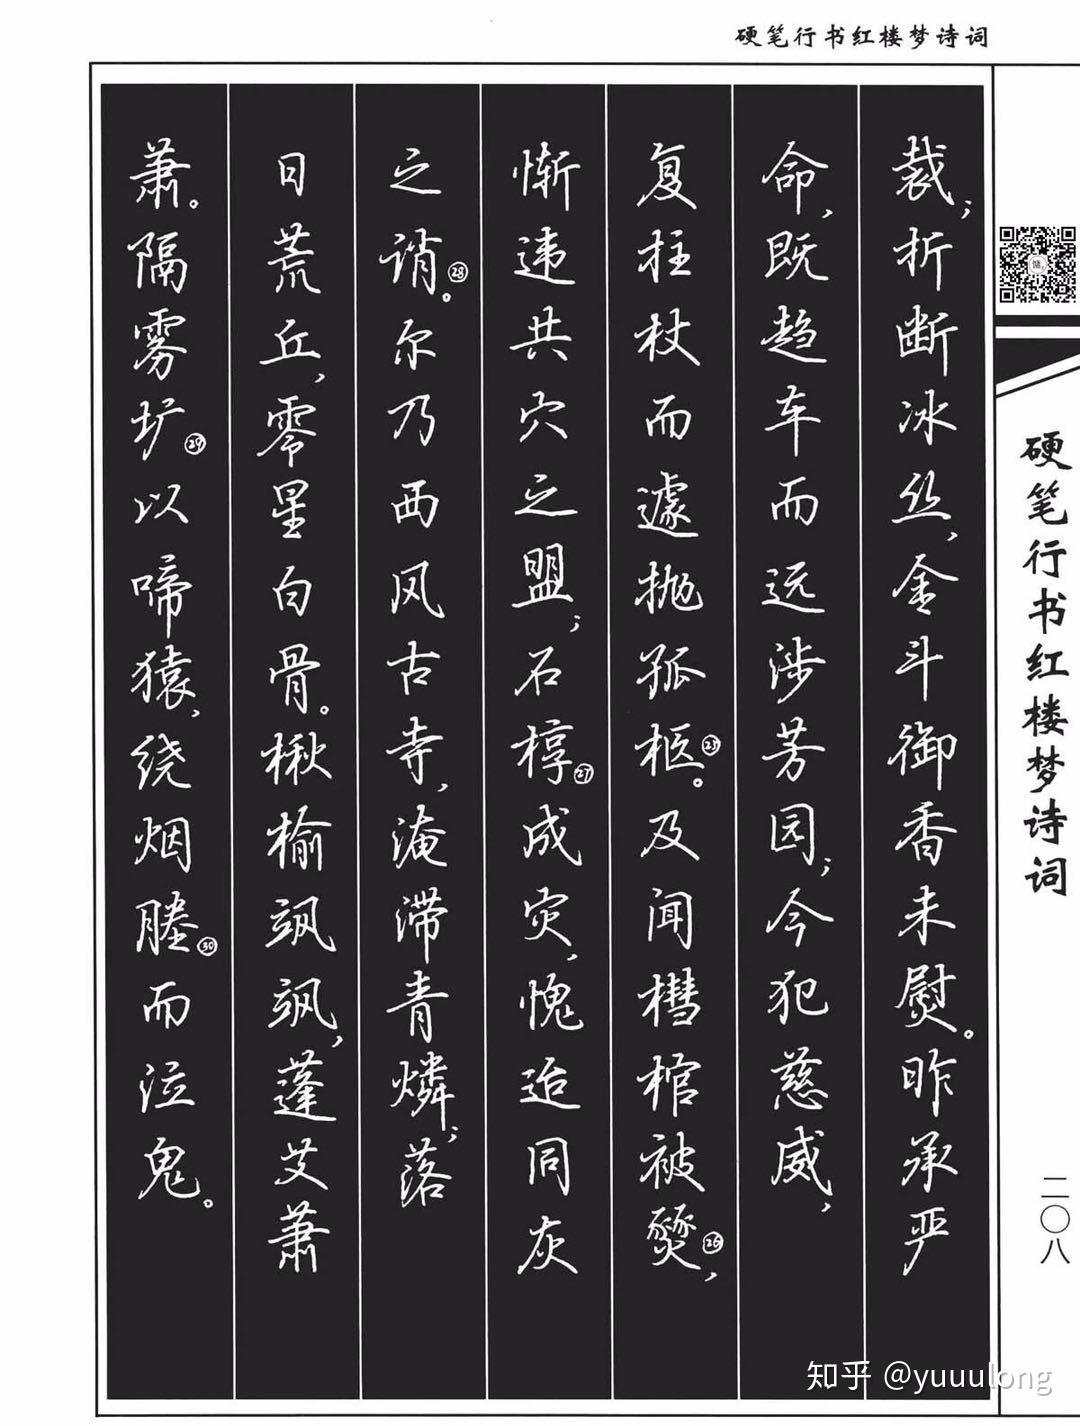 硬笔行书红楼梦诗词
裁；折断冰丝，金斗御香未熨。昨承严
命，既趋车而远涉芳园；今犯慈威，
复拄杖而遽抛孤柩㉕。及闻槥棺被燹㉖，
惭违共穴之盟；石椁㉗成灾，愧迨同灰
之诮㉘。尔乃西风古寺，淹滞青燐；落
日荒丘，零星白骨。楸榆飒飒，蓬艾萧
萧。隔雾圹㉙以啼猿，绕烟塍㉚而泣鬼。
硬笔行书红楼梦诗词
二〇八
知乎 @yuuulong